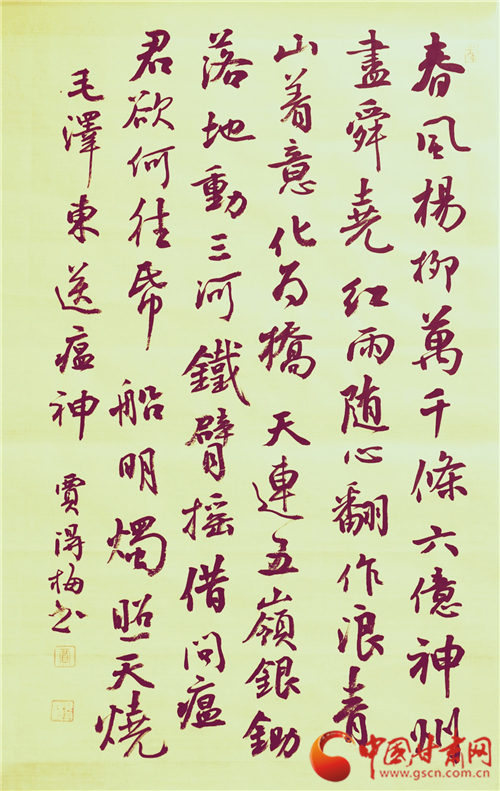 春风楊柳萬千條六億神州
盡舜堯红雨随心翻作浪青
山着意化为橋天連五嶺銀鋤
落地動三河鐵臂摇借问瘟
君欲何往帋船明燭照天燒
毛澤東送瘟神 賈得梅书
中国甘肃网
www.gscn.com.cn